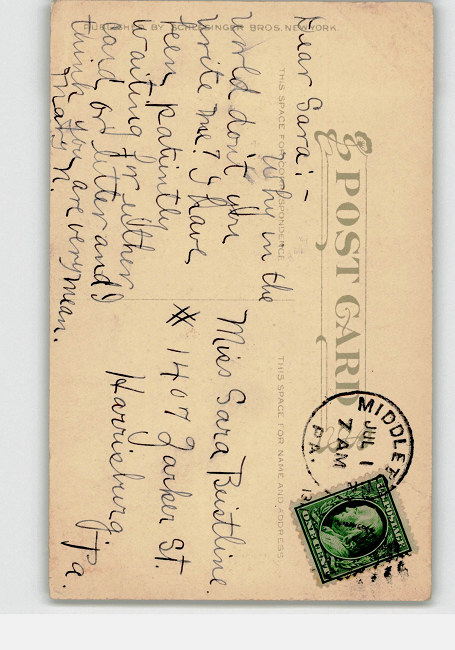 PUBLISHED BY SCHLESINGER BROS. NEW YORK
POST CARD
THIS SPACE FOR CORRESPONDENCE
THIS SPACE FOR NAME AND ADDRESS.
Dear Sara:-
Why in the
world don't you
write me? I have
been patiently
waiting for either
card or letter and I
think you are very mean.
Mary N.
Miss Sara Beistline.
# 1407 Zarker St.
Harrisburg.
Pa.
MIDDLET
JUL 1
7 AM
PA.
U.S. POSTAGE
ONE CENT